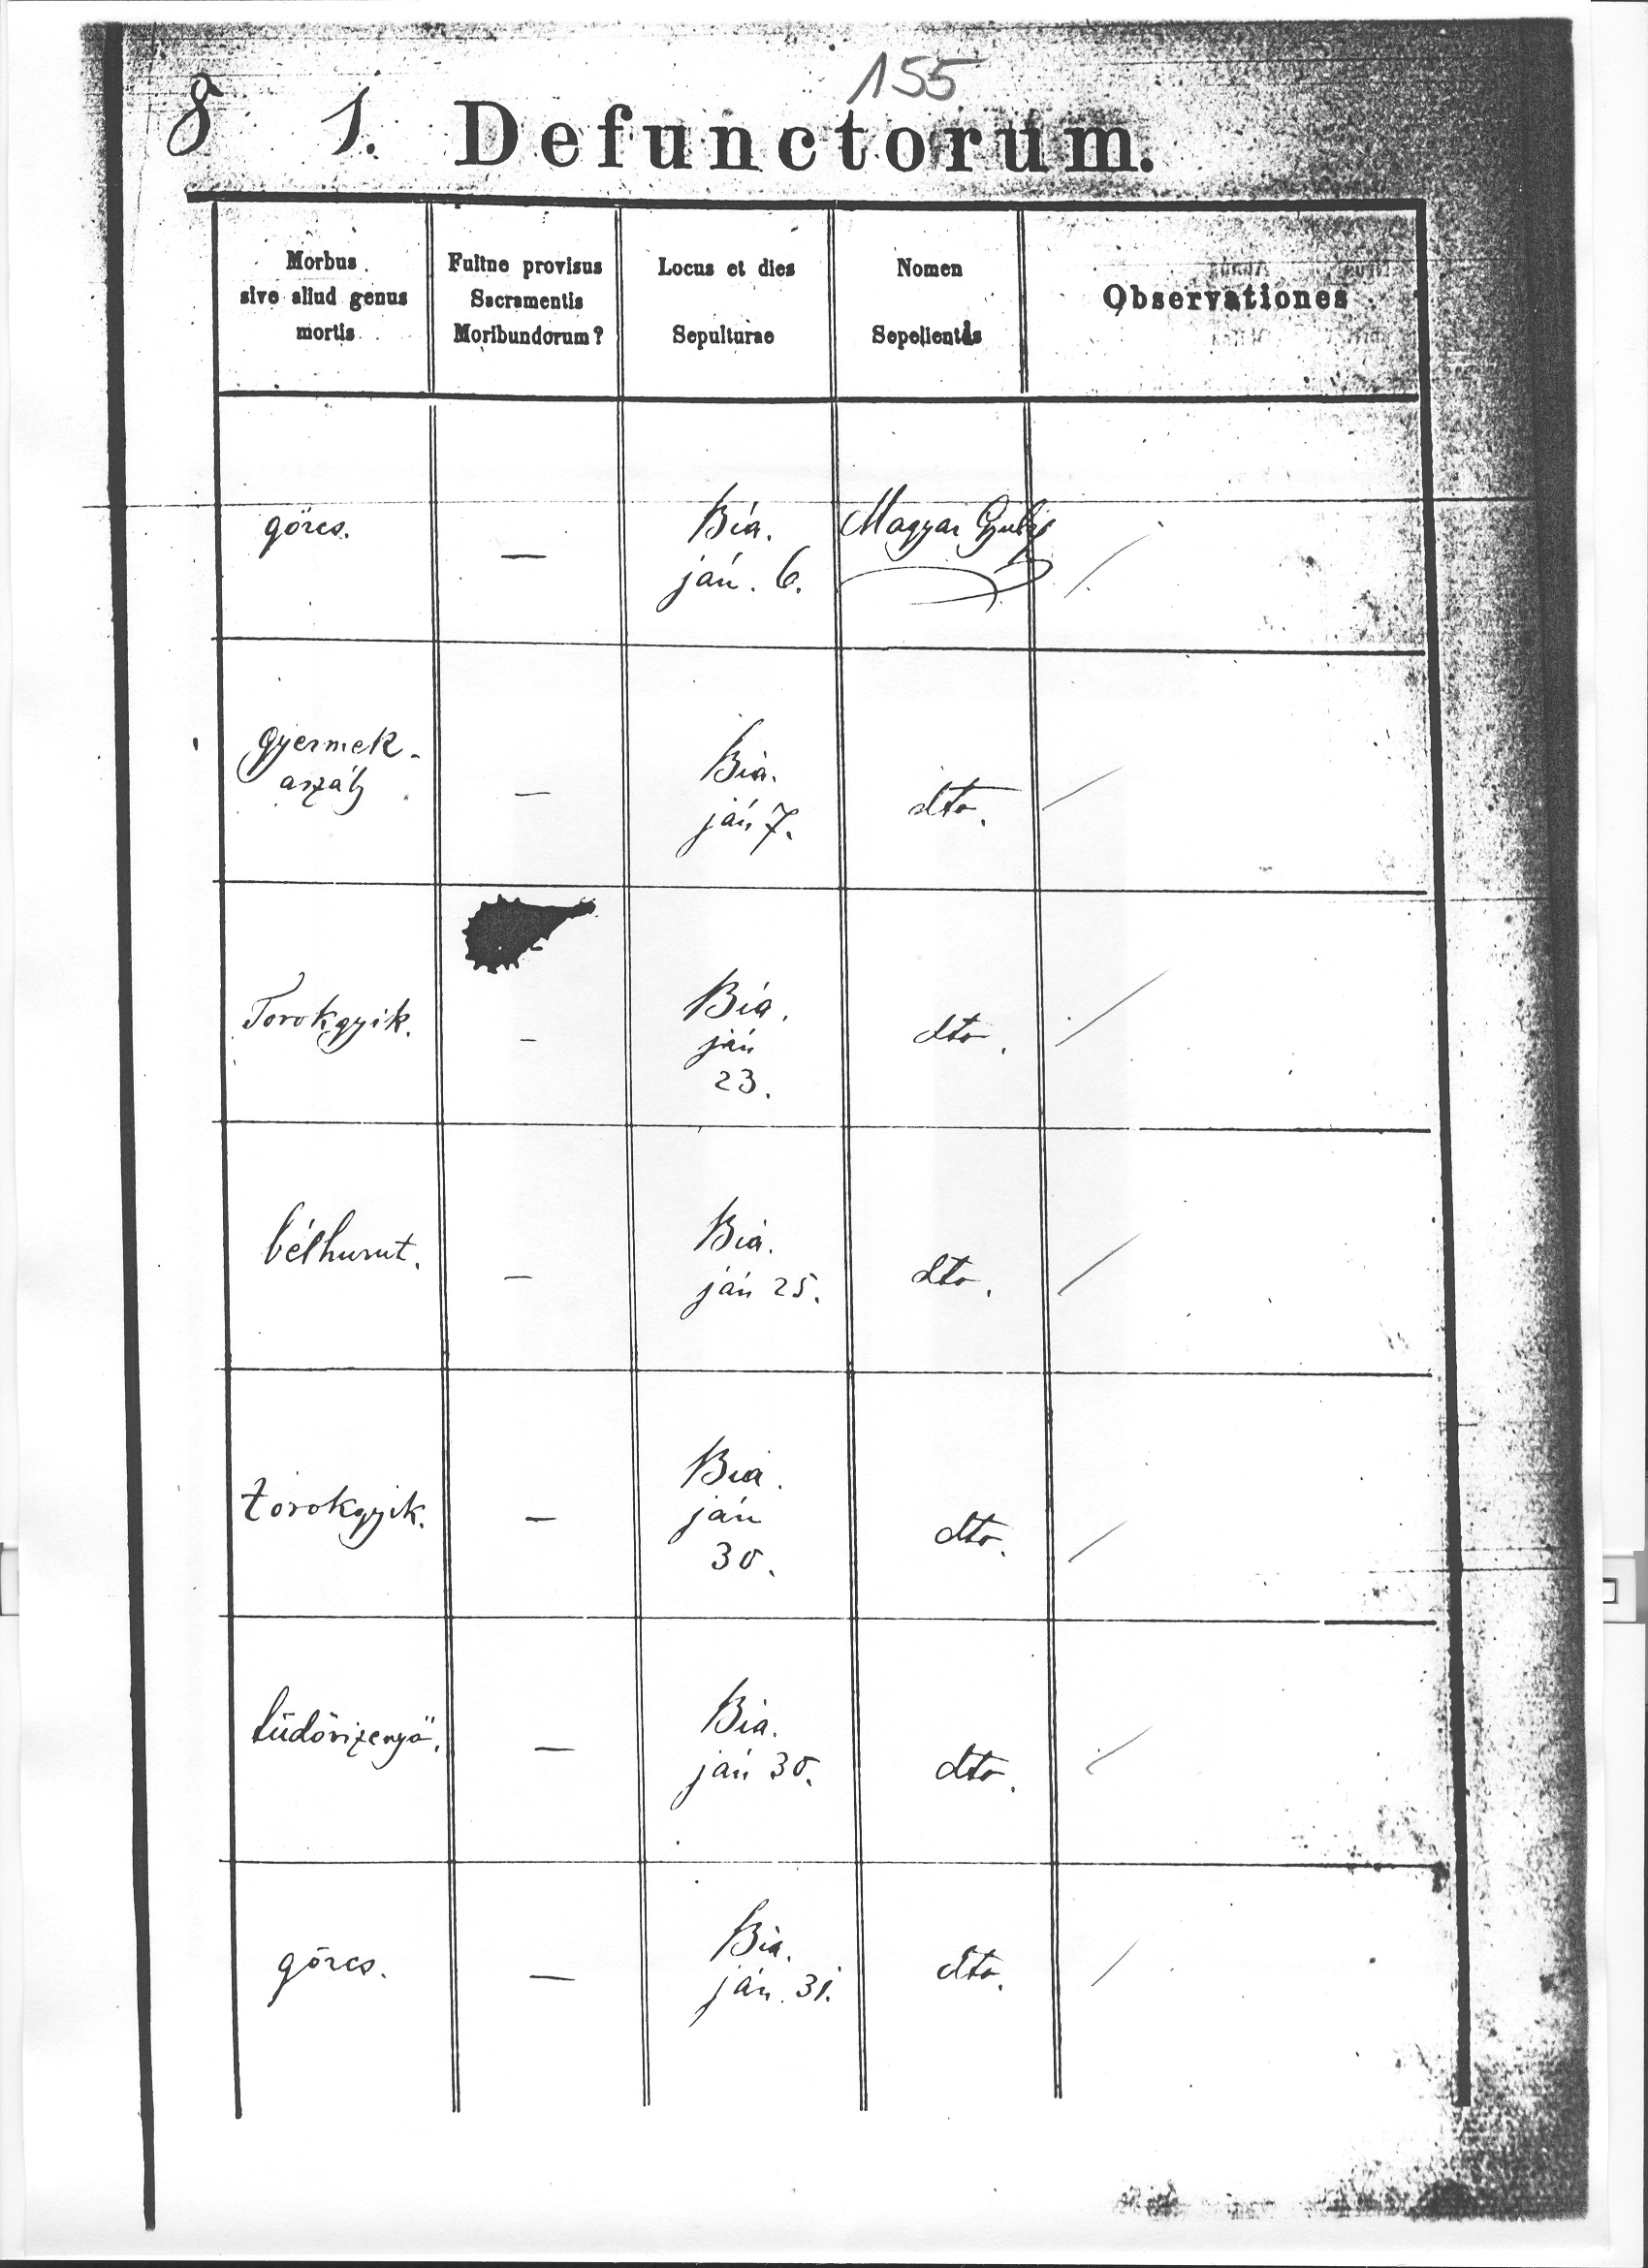 155
8 1. Defunctorum.
Morbus
sive aliud genus
mortis
Fuitne provisus
Sacramentis
Moribundorum?
Locus et dies
Sepulturae
Nomen
Sepelientis
Observationes
görcs.
—
Bia.
ján. 6.
Magyar Gyula
gyermek-
aszály
—
Bia.
ján 7.
dto.
Torokgyik.
—
Bia.
ján
23.
dto.
bélhurut.
—
Bia.
ján 25.
dto.
torokgyik.
—
Bia.
ján
30.
dto.
tüdővizenyő.
—
Bia.
ján 30.
dto.
görcs.
—
Bia.
ján. 31.
dto.